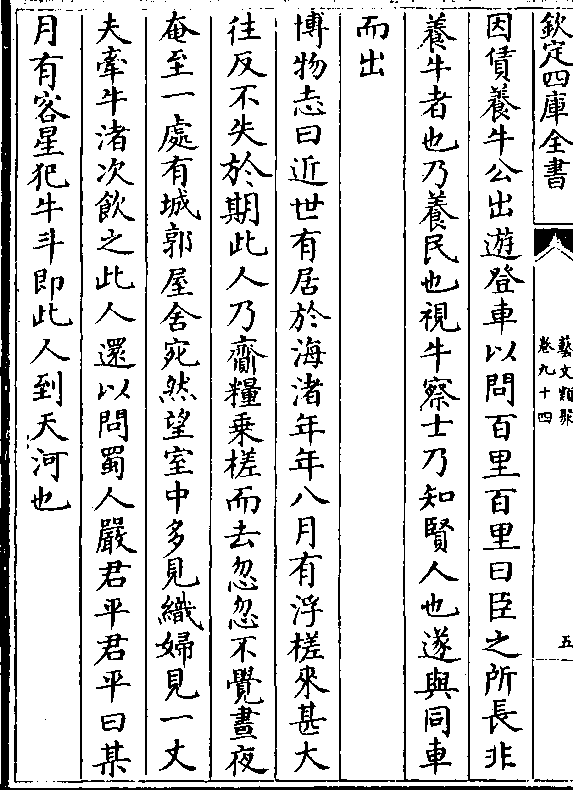 欽定四庫全書
藝文類聚
卷九十四
五
因賃養牛公出遊登車以問百里百里曰臣之所長非
養牛者也乃養民也視牛察士乃知賢人也遂與同車
而出
博物志曰近世有居於海渚年年八月有浮槎來甚大
往反不失於期此人乃齎糧乗槎而去忽忽不覺晝夜
奄至一處有城郭屋舍宛然望室中多見織婦見一丈
夫牽牛渚次飲之此人還以問蜀人嚴君平君平曰某
月有客星犯牛斗即此人到天河也